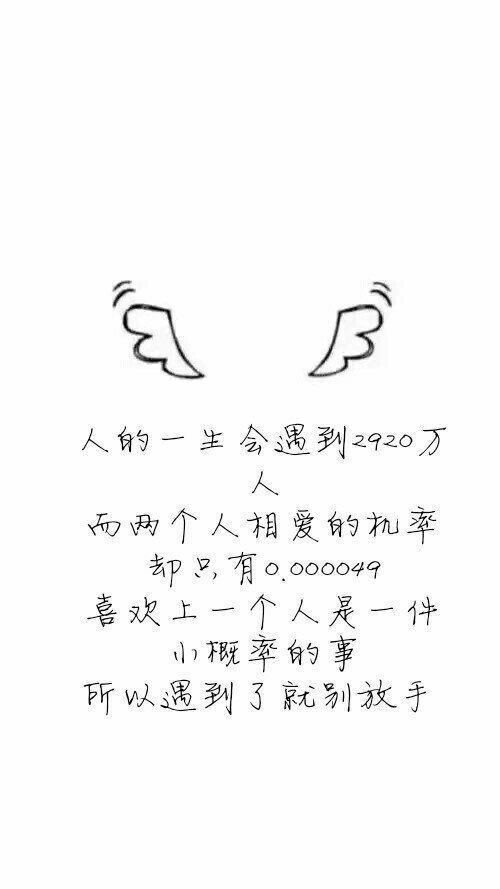 人的一生会遇到2920万
人
而两个人相爱的机率
却只有0.000049
喜欢上一个人是一件
小概率的事
所以遇到了就别放手